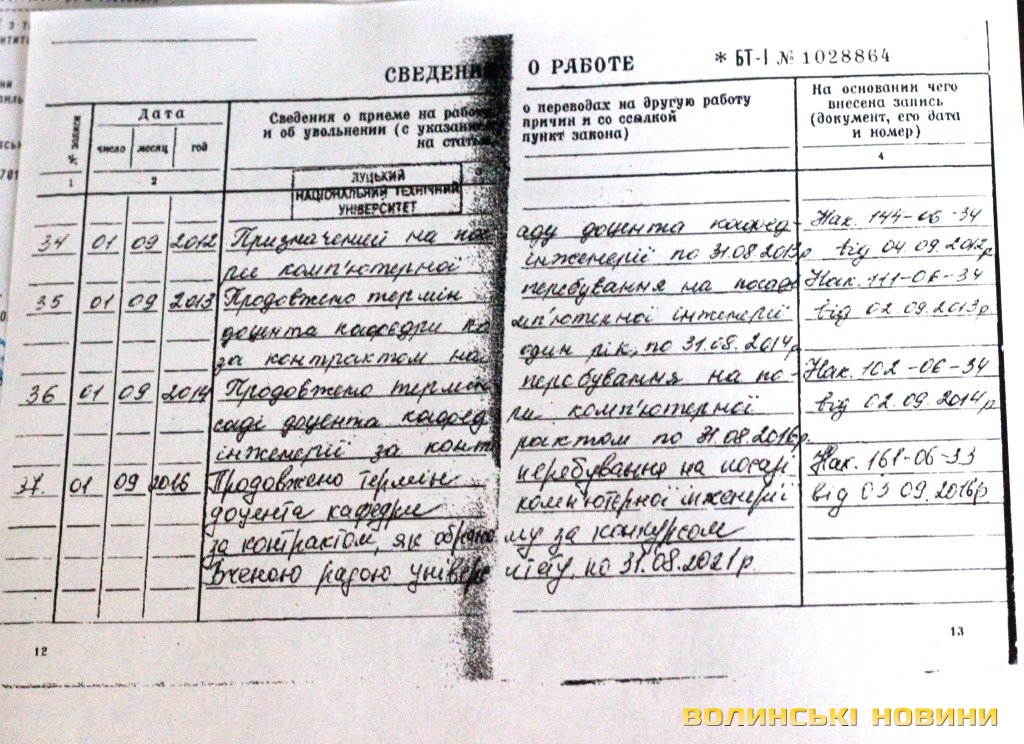 СВЕДЕНИ О РАБОТЕ * БТ-I № 1028864
№ записи
Дата
число месяц год
Сведения о приеме на рабо
и об увольнении (с указание
на стать
о переводах на другую работу
причин и со ссылкой
пункт закона)
На основании чего
внесена запись
(документ, его дата
и номер)
1 2 4
ЛУЦЬКИЙ
НАЦІОНАЛЬНИЙ ТЕХНІЧНИЙ
УНІВЕРСИТЕТ
34 01 09 2012 Призначений на пос аду доцента кафед- Нак. 144-06-34
ри комп'ютерної інженерії по 31.08.2013р від 04.09.2012р
35 01 09 2013 Продовжено термін перебування на посаді Нак. 111-06-34
доцента кафедри ко мп'ютерної інженерії від 02.09.2013р.
за контрактом на один рік, по 31.08.2014р
36 01 09 2014 Продовжено термін перебування на по- Нак. 102-06-34
саді доцента кафед ри комп'ютерної від 02.09.2014р
інженерії за конт рактом по 31.08.2016р.
37. 01 09 2016 Продовжено термін перебування на посаді Нак. 161-06-33
доцента кафедри комп'ютерної інженерії від 03 09.2016р
за контрактом, як обрано му за конкурсом
Вченою радою універс итету, по 31.08.2021р.
12 13
ВОЛИНСЬКІ НОВИНИ